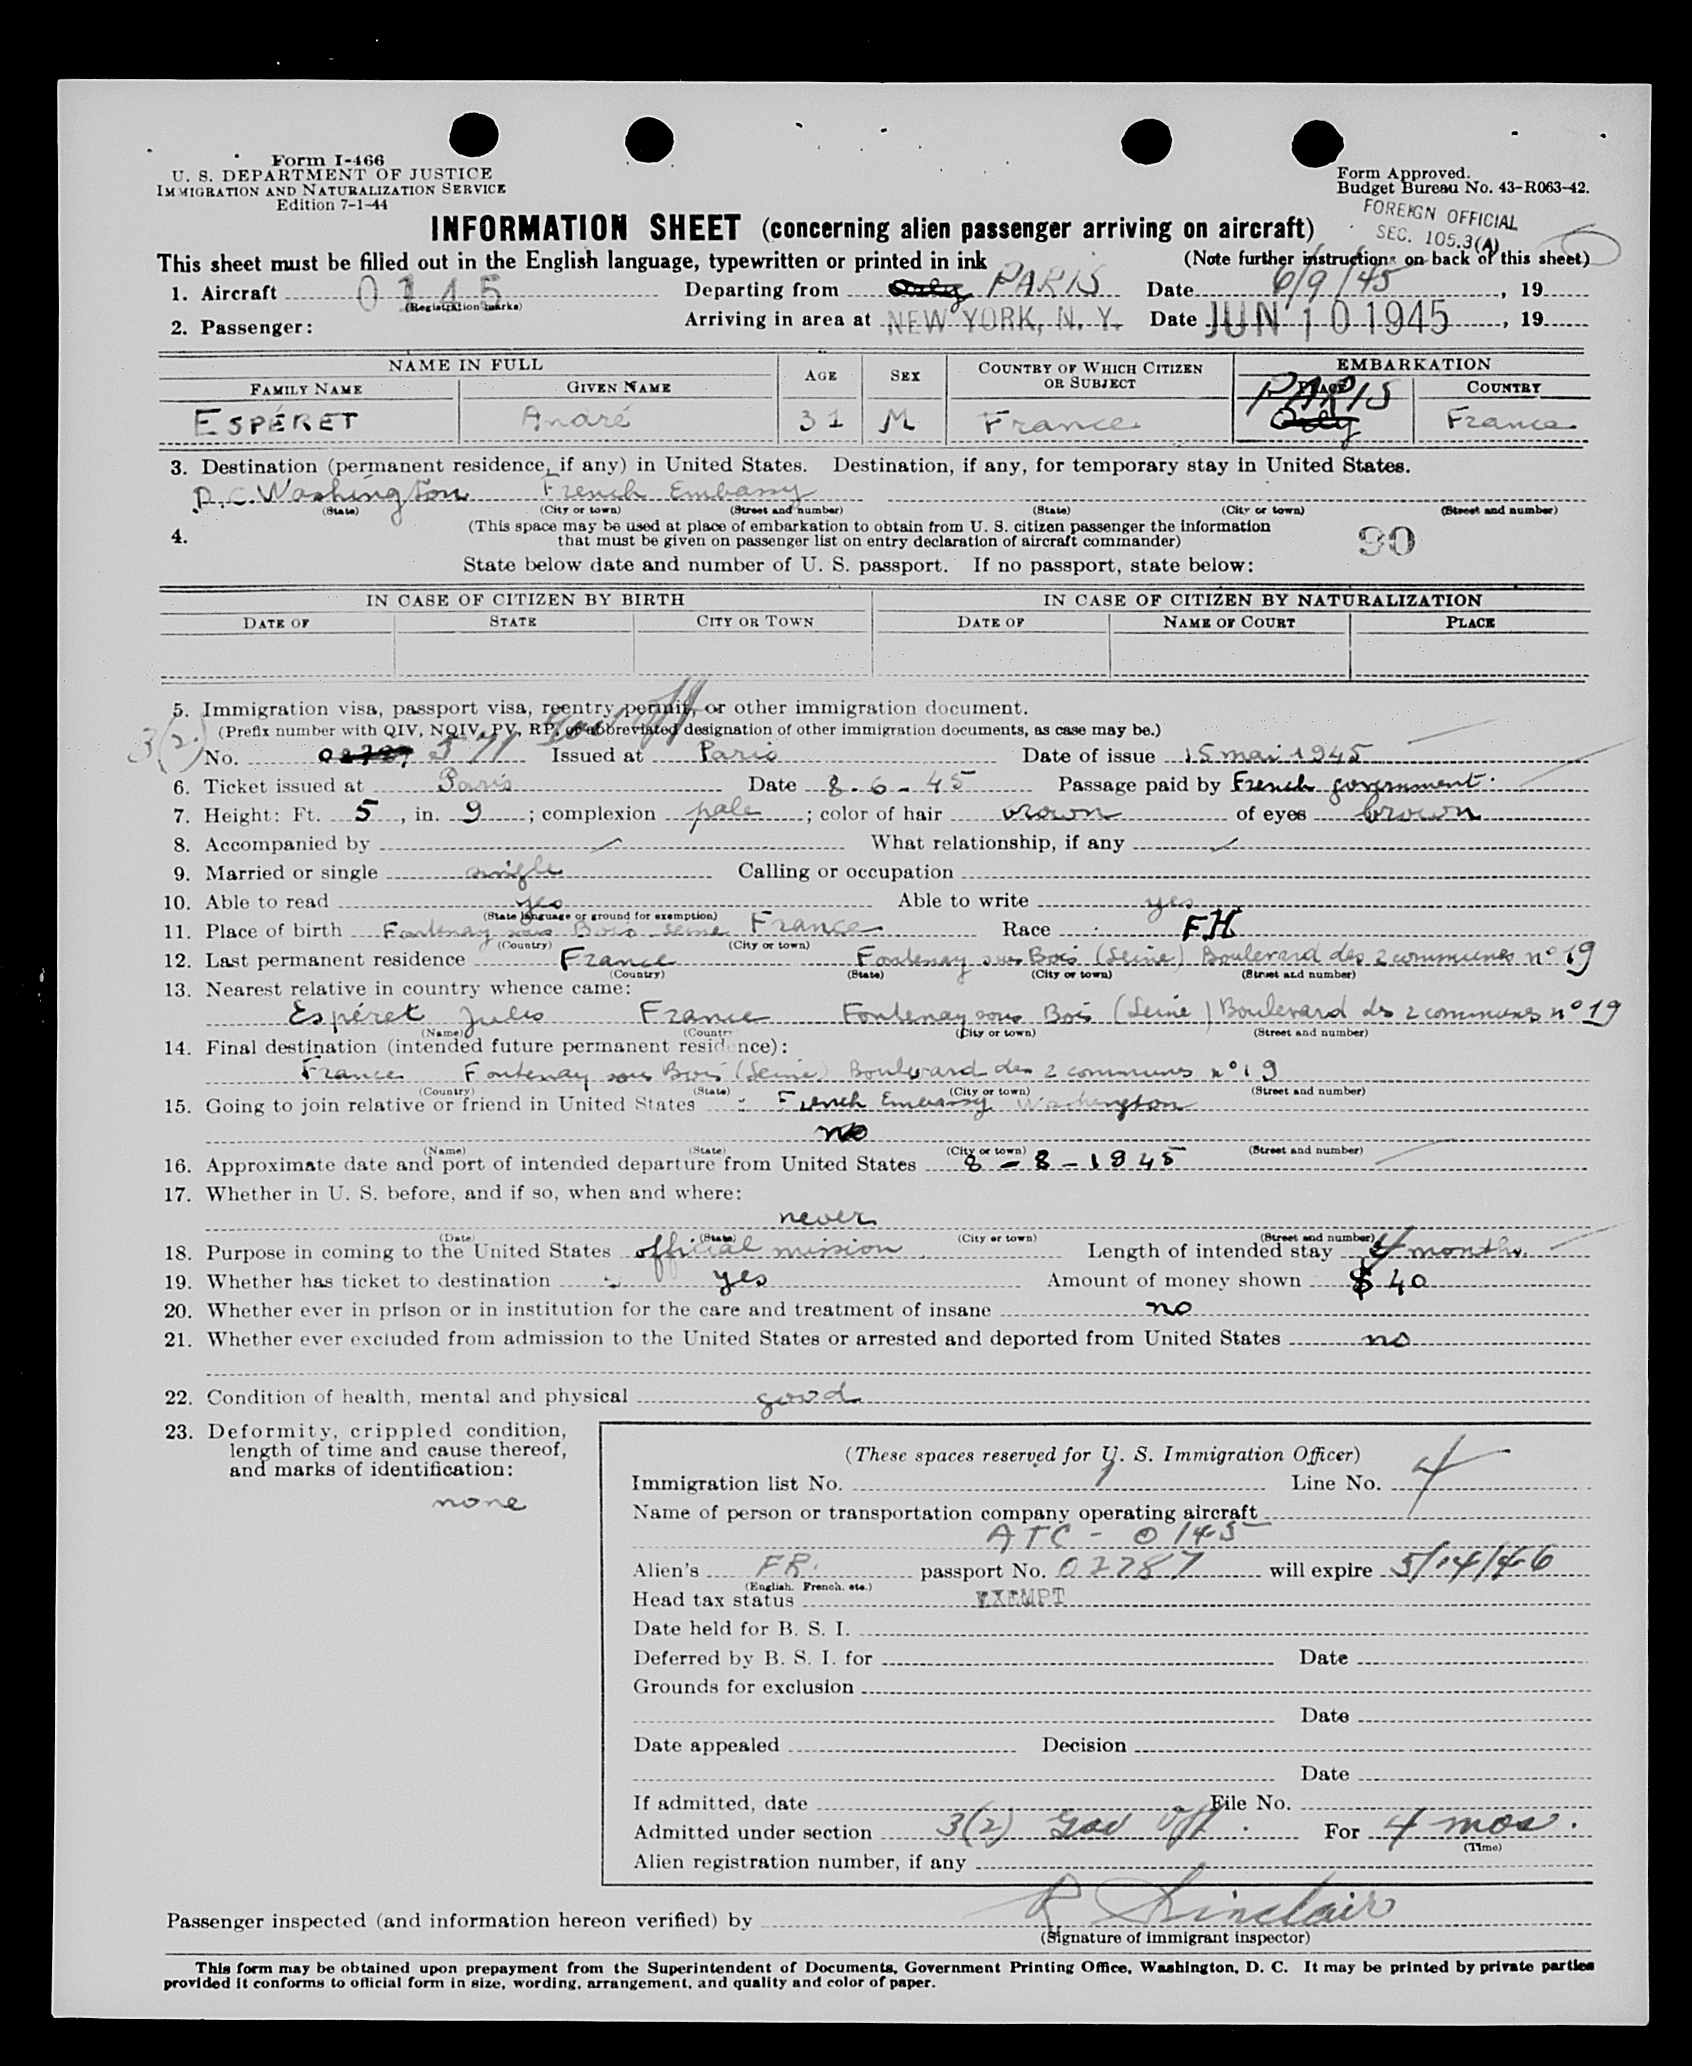 Form I-466
U. S. DEPARTMENT OF JUSTICE
IMMIGRATION AND NATURALIZATION SERVICE
Edition 7-1-44
Form Approved.
Budget Bureau No. 43-R063-42.
FOREIGN OFFICIAL
SEC. 105.3(A)
INFORMATION SHEET (concerning alien passenger arriving on aircraft)
This sheet must be filled out in the English language, typewritten or printed in ink (Note further instructions on back of this sheet)
1. Aircraft 0145 Departing from Orly PARIS Date 6/9/45, 19
(Registration marks)
2. Passenger: Arriving in area at NEW YORK, N. Y. Date JUN 10 1945, 19
NAME IN FULL AGE SEX COUNTRY OF WHICH CITIZEN OR SUBJECT EMBARKATION
FAMILY NAME GIVEN NAME PLACE COUNTRY
ESPÉRET André 31 M France PARIS Orly France
3. Destination (permanent residence, if any) in United States. Destination, if any, for temporary stay in United States.
D.C. Washington French Embassy
(State) (City or town) (Street and number) (State) (City or town) (Street and number)
4. (This space may be used at place of embarkation to obtain from U. S. citizen passenger the information
that must be given on passenger list on entry declaration of aircraft commander)
90
State below date and number of U. S. passport. If no passport, state below:
IN CASE OF CITIZEN BY BIRTH IN CASE OF CITIZEN BY NATURALIZATION
DATE OF STATE CITY OR TOWN DATE OF NAME OF COURT PLACE
5. Immigration visa, passport visa, reentry permit, or other immigration document.
3(2) Gov Off
(Prefix number with QIV, NQIV, PV, RP, or abbreviated designation of other immigration documents, as case may be.)
No. 571 Issued at Paris Date of issue 15 mai 1945
6. Ticket issued at Paris Date 8-6-45 Passage paid by French government.
7. Height: Ft. 5, in. 9; complexion pale; color of hair brown of eyes brown
8. Accompanied by What relationship, if any
9. Married or single single Calling or occupation
10. Able to read yes Able to write yes
(State language or ground for exemption)
11. Place of birth Fontenay sous Bois Seine France Race FH
(Country) (City or town)
12. Last permanent residence France Fontenay sous Bois (Seine) Boulevard des 2 communes n° 19
(Country) (State) (City or town) (Street and number)
13. Nearest relative in country whence came:
Espéret Jules France Fontenay sous Bois (Seine) Boulevard des 2 communes n° 19
(Name) (Country) (City or town) (Street and number)
14. Final destination (intended future permanent residence):
France Fontenay sous Bois (Seine) Boulevard des 2 communes n° 19
(Country) (State) (City or town) (Street and number)
15. Going to join relative or friend in United States French Embassy Washington
no
(Name) (State) (City or town) (Street and number)
16. Approximate date and port of intended departure from United States 8-8-1945
17. Whether in U. S. before, and if so, when and where:
never
(Date) (State) (City or town) (Street and number)
18. Purpose in coming to the United States official mission Length of intended stay 4 months
19. Whether has ticket to destination yes Amount of money shown $ 40
20. Whether ever in prison or in institution for the care and treatment of insane no
21. Whether ever excluded from admission to the United States or arrested and deported from United States no
22. Condition of health, mental and physical good
23. Deformity, crippled condition,
length of time and cause thereof,
and marks of identification:
none
(These spaces reserved for U. S. Immigration Officer)
Immigration list No. 1 Line No. 4
Name of person or transportation company operating aircraft
ATC - 0145
Alien's FR. passport No. 02787 will expire 5/14/46
(English. French. etc.)
Head tax status EXEMPT
Date held for B. S. I.
Deferred by B. S. I. for Date
Grounds for exclusion
Date
Date appealed Decision
Date
If admitted, date File No.
Admitted under section 3(2) Gov Off. For 4 mos.
(Time)
Alien registration number, if any
Passenger inspected (and information hereon verified) by R Sinclair
(Signature of immigrant inspector)
This form may be obtained upon prepayment from the Superintendent of Documents, Government Printing Office, Washington, D. C. It may be printed by private parties
provided it conforms to official form in size, wording, arrangement, and quality and color of paper.